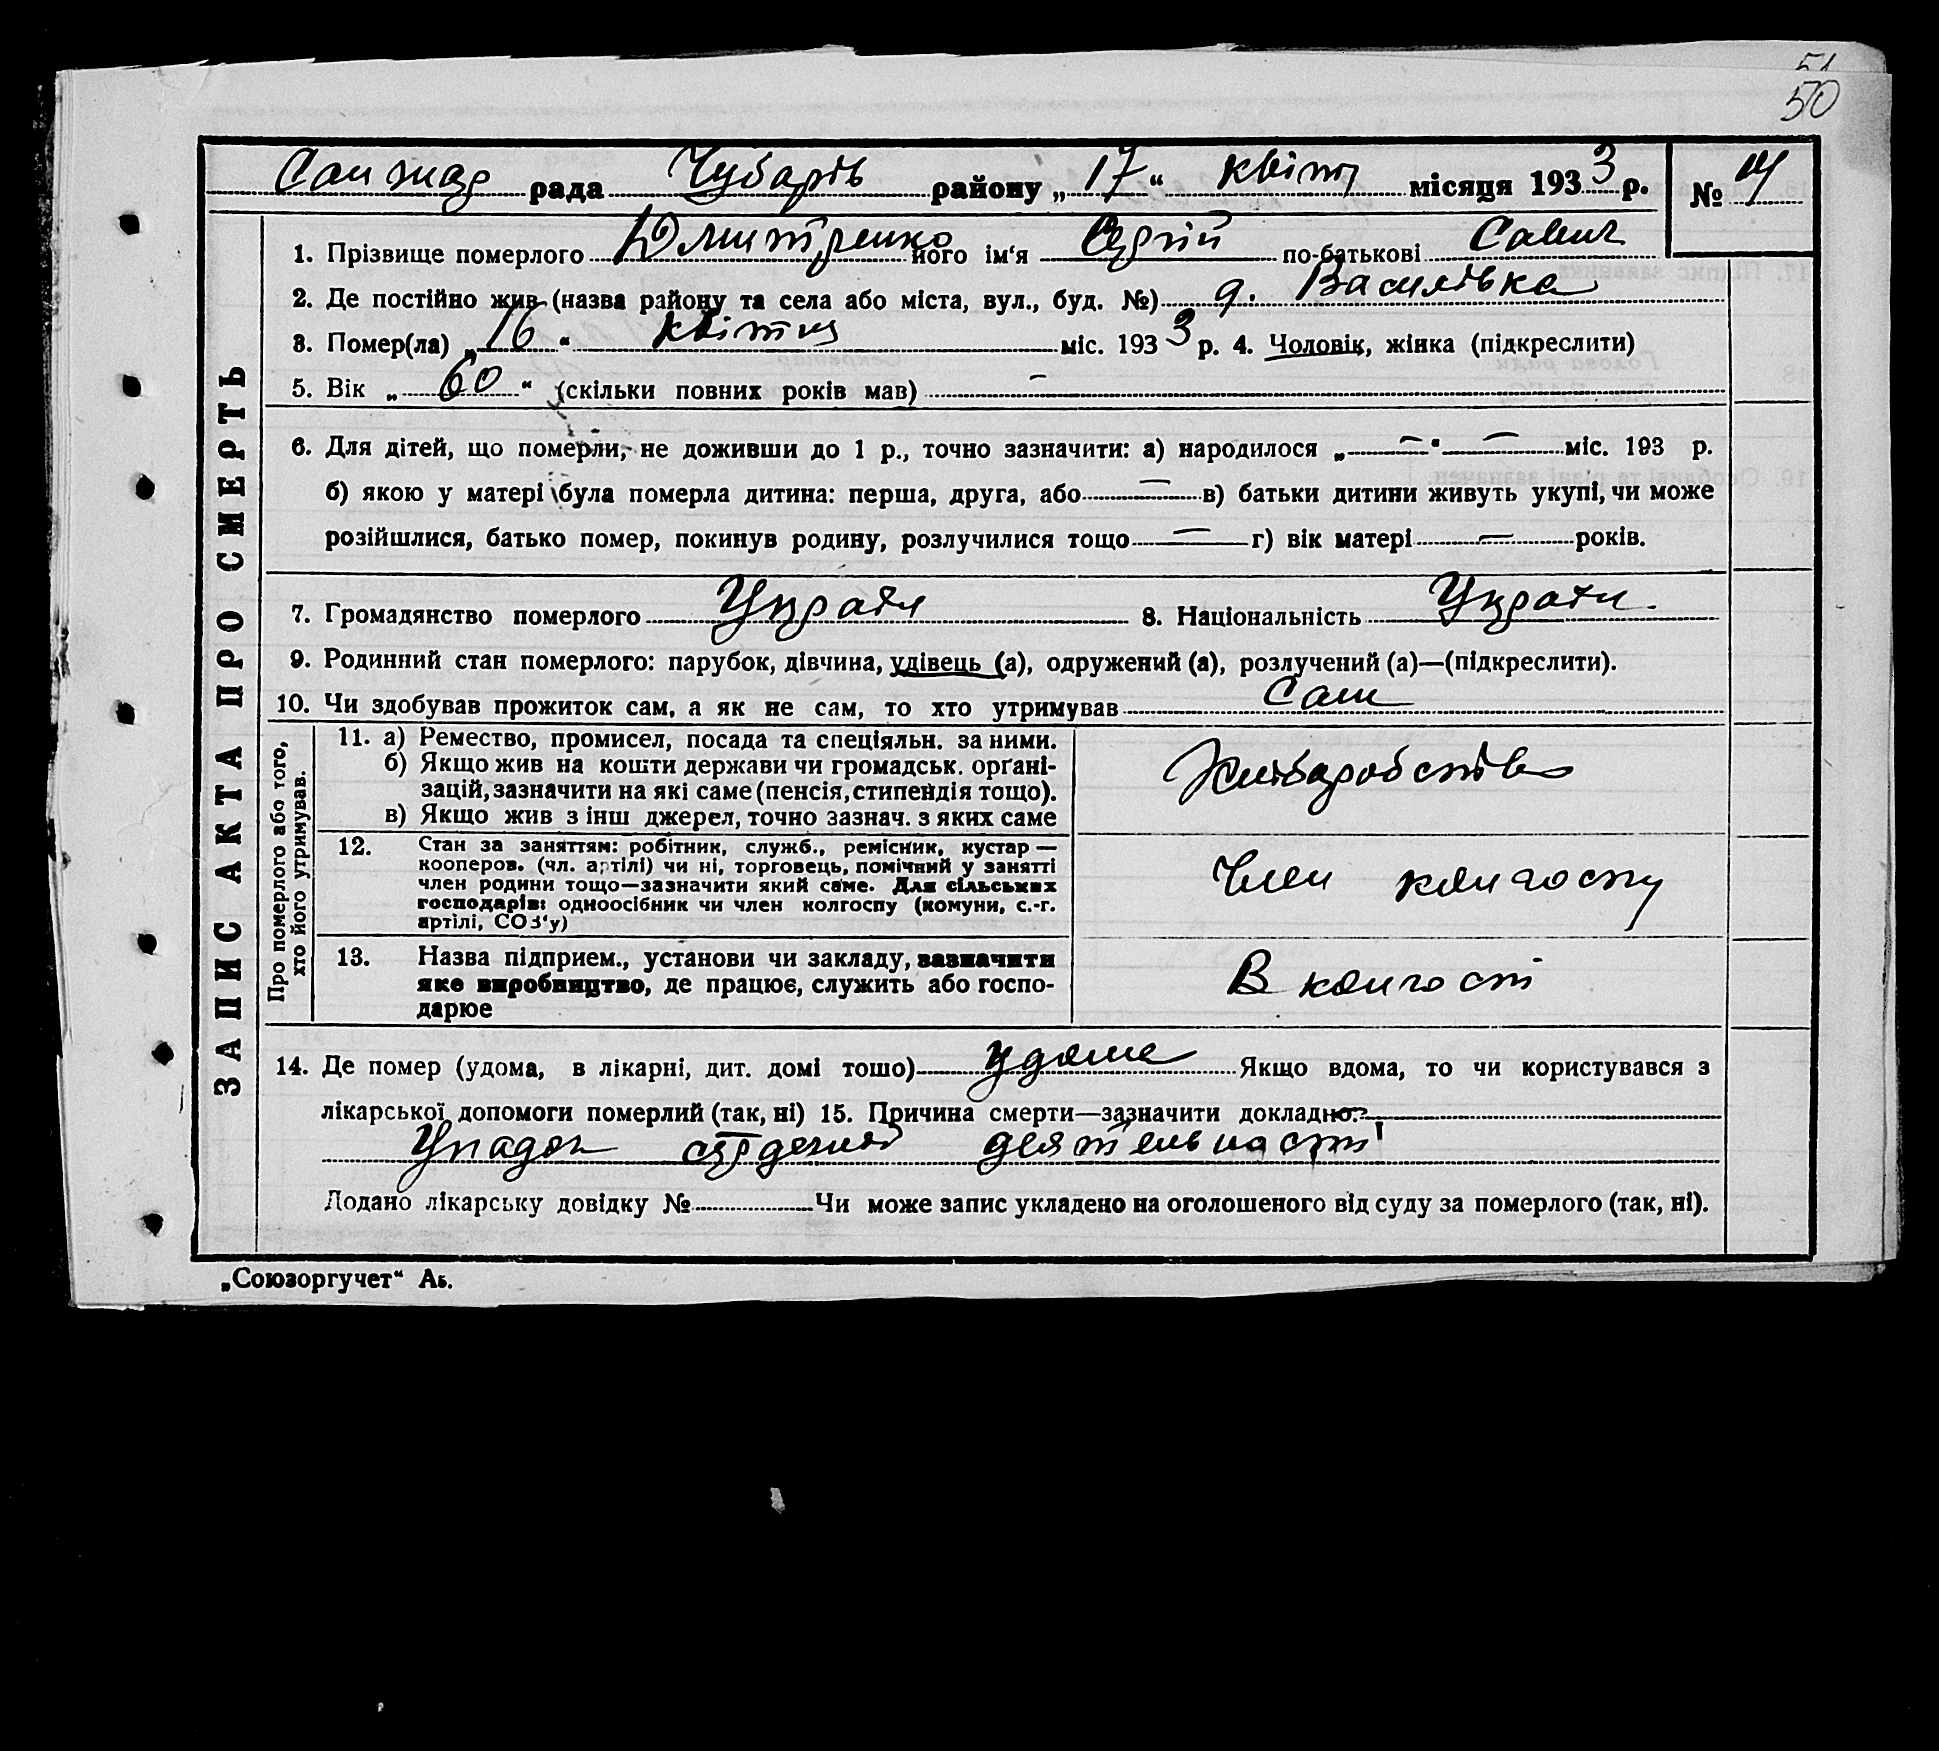 51
50
Санжар рада Чубарів району „17“ квітня місяця 1933 р. № 14
1. Прізвище померлого Дмитренко його ім‘я Сергій по-батькові Савич
2. Де постійно жив (назва району та села або міста, вул., буд. №) д. Василівка
3. Помер(ла) „16“ квітня міс. 1933 р. 4. Чоловік, жінка (підкреслити)
5. Вік „60“ (скільки повних років мав) —
6. Для дітей, що померли, не доживши до 1 р., точно зазначити: а) народилося „—“ — міс. 193 р.
б) якою у матері була померла дитина: перша, друга, або — в) батьки дитини живуть укупі, чи може
розійшлися, батько помер, покинув родину, розлучилися тощо — г) вік матері — років.
7. Громадянство померлого 8. Національність
9. Родинний стан померлого: парубок, дівчина, удівець (а), одружений (а), розлучений (а)—(підкреслити).
10. Чи здобував прожиток сам, а як не сам, то хто утримував Сам
ЗАПИС АКТА ПРО СМЕРТЬ
Про померлого або того,
хто його утримував.
11. а) Ремество, промисел, посада та спеціяльн. за ними.
б) Якщо жив на кошти держави чи громадськ. орґані-
зацій, зазначити на які саме (пенсія, стипендія тощо).
в) Якщо жив з інш джерел, точно зазнач. з яких саме
Хліборобство
12. Стан за заняттям: робітник, служб., ремісник, кустар —
кооперов. (чл. артілі) чи ні, торговець, помічний у занятті
член родини тощо—зазначити який саме. Для сільських
господарів: одноосібник чи член колгоспу (комуни, с.-г.
артілі, СОЗ‘у)
Член колгоспу
13. Назва підприєм., установи чи закладу, зазначити
яке виробництво, де працює, служить або госпо-
дарює
В колгості
14. Де помер (удома, в лікарні, дит. домі тощо) удома Якщо вдома, то чи користувався з
лікарської допомоги померлий (так, ні) 15. Причина смерти—зазначити докладно:
Упадок сердечной деятельности
Додано лікарську довідку № Чи може запис укладено на оголошеного від суду за померлого (так, ні).
„Союзоргучет“ Аь.